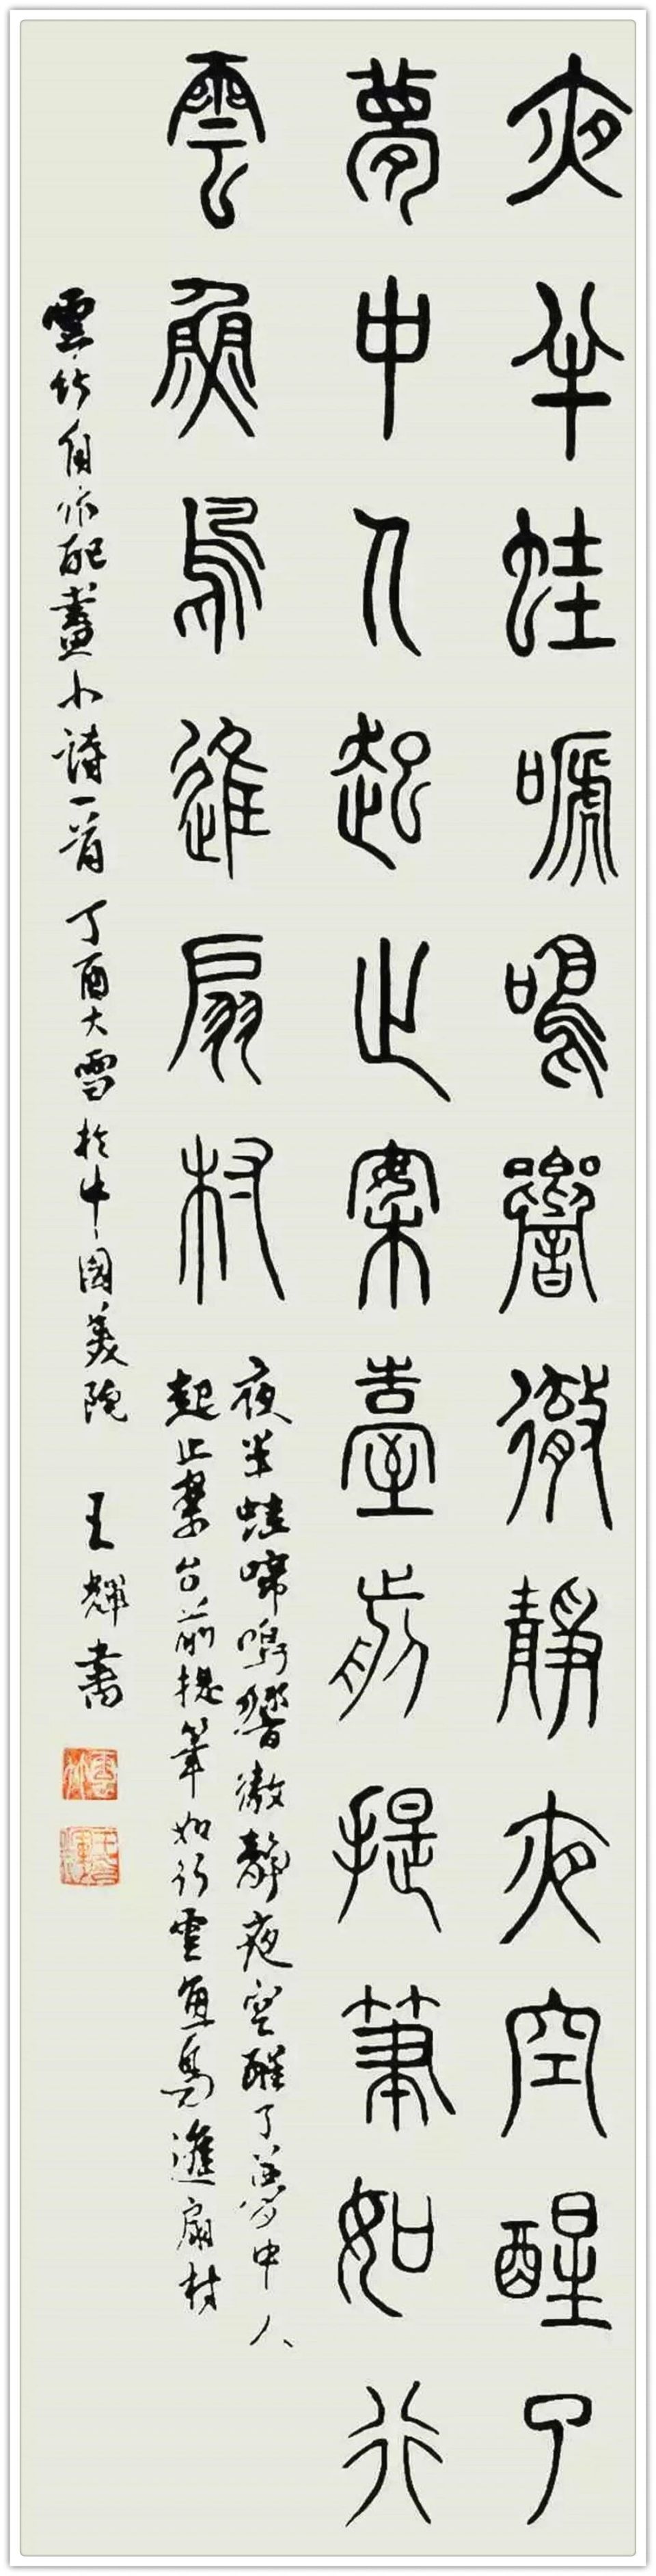 夜半蛙嗁鳴響徹靜夜空醒了
夢中人起止案臺前提筆如行
雲魚鳥進扇
夜半蛙啼鳴響徹靜夜空醒了夢中人
起止案台前提筆如行雲魚鳥進扇
雲竹自作配畫小詩一首 丁酉大雪於中國美院 王輝書
雲竹
王輝